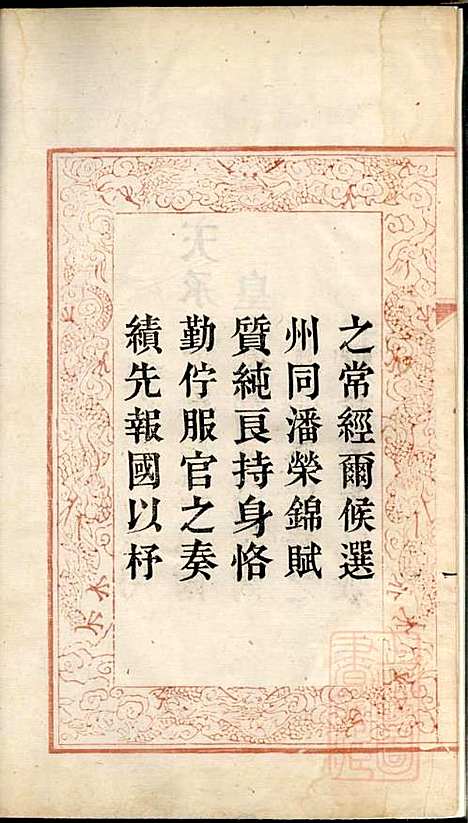 之常經爾候選
州同潘榮錦賦
質純良持身恪
勤佇服官之奏
績先報國以杼